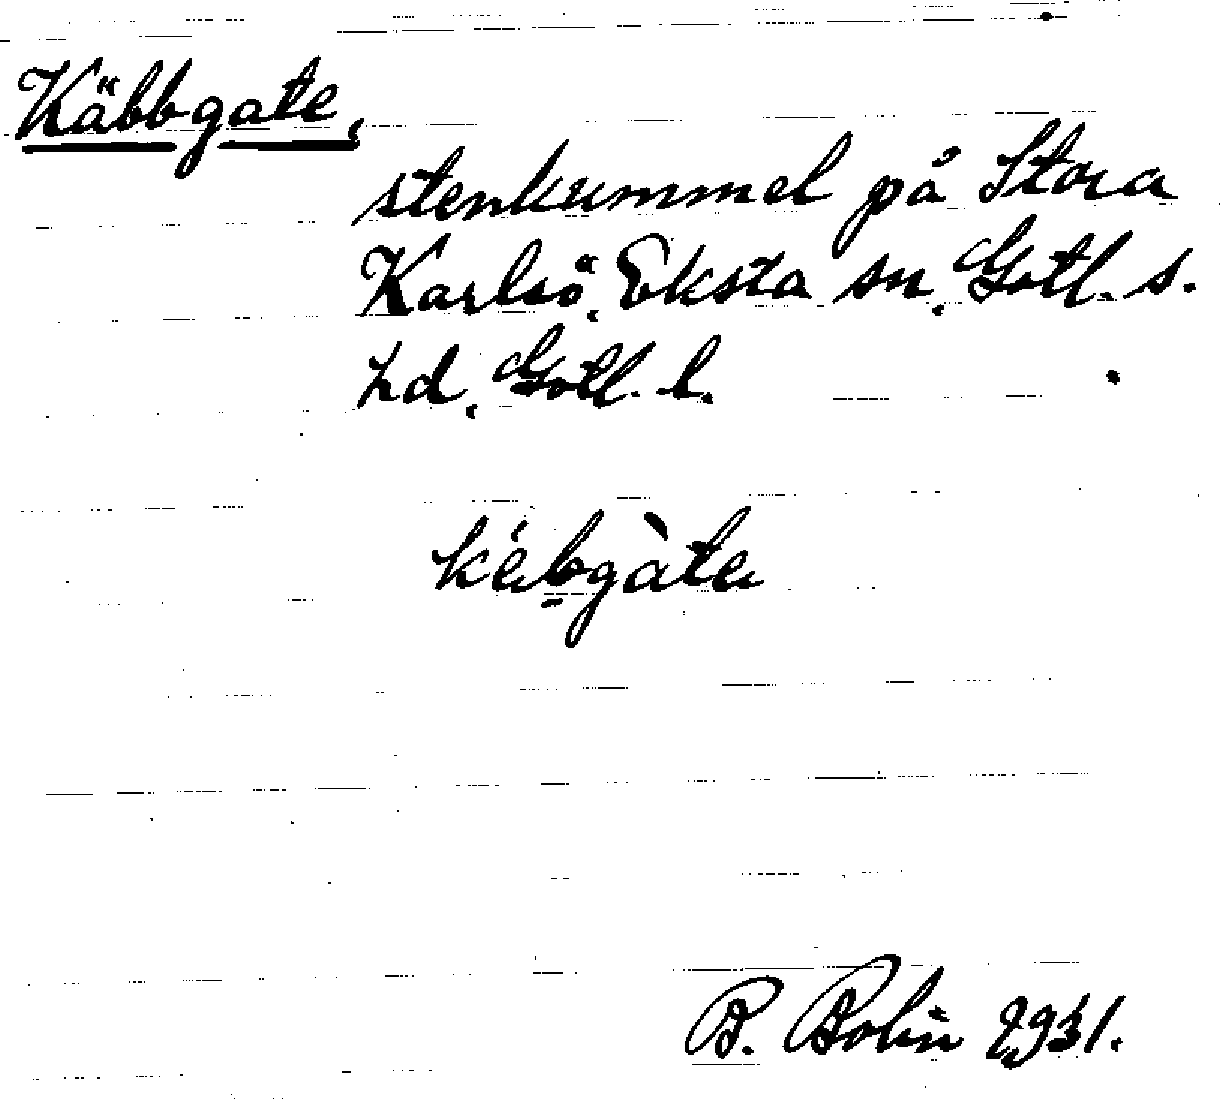 Käbbgate,
stenkummel på Stora
Karlsö, Eksta sn, Gotl. s.
hd, Gotl. l.
B. Bolin 1931.